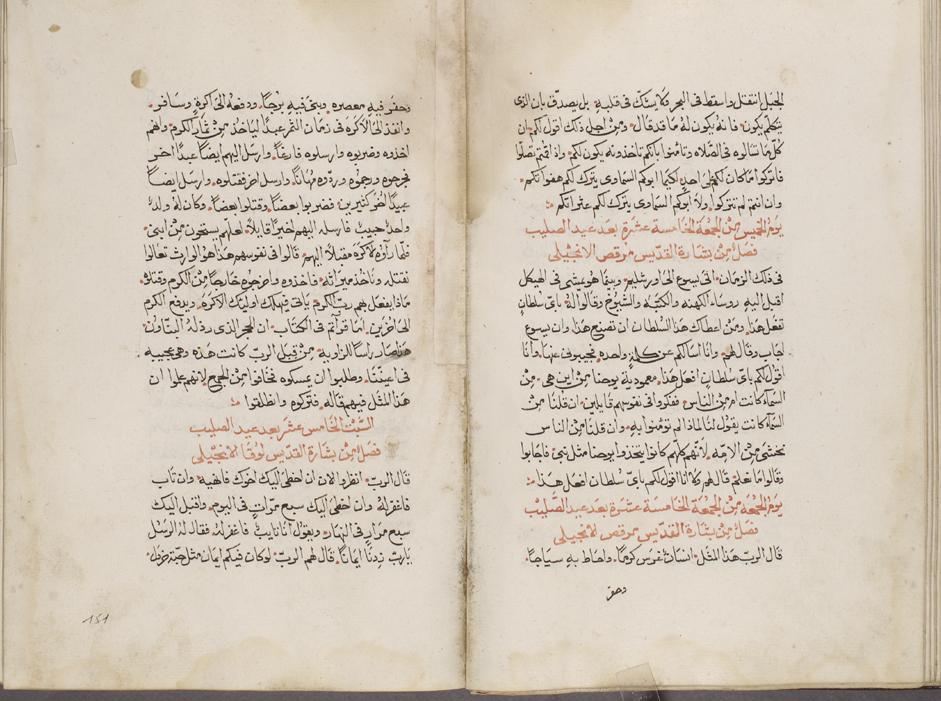 الجبل انتقل واسقط في البحر ولا يشك في قلبه بل يصدق بان الذي
يتكلم يكون فانه يكون له ما قد قال ومن اجل ذلك اقول لكم ان
كل ما تسالوه في الصلاه وتامنوا بانكم تاخذونه يكون لكم واذا قمتم تصلوا
فاتركوا ما كان لكم على احد لكيما ابوكم السماوي يترك لكم هفواتكم
وان انتم لم تتركوا ولا ابوكم السماوي يترك لكم عثراتكم
يوم الخميس من الجمعة الخامسة عشرة بعد عيد الصليب
فصل من بشارة القديس مرقص الانجيلي
في ذلك الزمان اتى يسوع الى اورشليم وبينما هو يمشي في الهيكل
اقبل اليه روساء الكهنه والكتبه والشيوخ وقالوا له باي سلطان
تفعل هذا ومن اعطاك هذا السلطان ان تصنع هذا وان يسوع
اجاب وقال لهم وانا اسالكم عن كلمة واحده تجيبوني عنها وانا
اقول لكم باي سلطان افعل هذا معمودية يوحنا من اين هي من
السمآء كانت ام من الناس ففكروا في نفوسهم قايلين ان قلنا من
السمآء كانت يقول لنا لماذا لم تومنوا به وان قلنا من الناس
نخشى من الامه لانهم كلهم كانوا يتخذوا يوحنا مثل نبي فاجابوا
وقالوا ما نعلم قال لهم ولا انا اقول لكم باي سلطان افعل هذا
يوم الجمعة من الجمعة الخامسة عشرة بعد عيد الصليب
فصل من بشارة القديس مرقص الانجيلي
قال الرب هذا المثل انسان غرس كرما واحاط به سياجا
وحفر
وحفر فيه معصره وبنى فيه برجا ودفعه الى اكرة وسافر
وانفذ الى الاكره في زمان الثمر عبدا لياخذ من ثمار الكرم وانهم
اخذوه وضربوه وارسلوه فارغا وارسل اليهم ايضا عبدا اخر
فجرحوه ورجموه وردوه مهانا وارسل اخر فقتلوه وارسل ايضا
عبيدا اخر كثيرين فضربوا بعضا وقتلوا بعضا وكان له ولد
واحد حبيب فارسله اليهم اخيرا قايلا لعلهم يستحون من ابني
فلما راوه الاكره مقبلا اليهم قالوا في نفوسهم هذا هو الوارث تعالوا
نقتله وناخذ ميراثه فاخذوه واخرجوه خارجا من الكرم وقتلوه
ماذا يفعل بهم رب الكرم ياتي فيهلك اوليك الاكره ويدفع الكرم
الى اخرين اما قراتم في الكتاب ان الحجر الذي رذله البناون
هذا صار راسا للزاوية من قبل الرب كانت هذه وهي عجيبه
في اعيننا وطلبوا ان يمسكوه فخافوا من الجمع لانهم علموا ان
هذا المثل فيهم قاله فتركوه وانطلقوا
السبت الخامس عشر بعد عيد الصليب
فصل من بشارة القديس لوقا الانجيلي
قال الرب انظروا الان ان اخطى اليك اخوك فانهيه وان تاب
فاغفر له وان اخطى اليك سبع مرات في اليوم واقبل اليك
سبع مرار في النهار ويقول انا تايب فاغفر له فقال له الرسل
يا رب زدنا ايمانا قال لهم الرب لو كان فيكم ايمان مثل حبة خردل
151